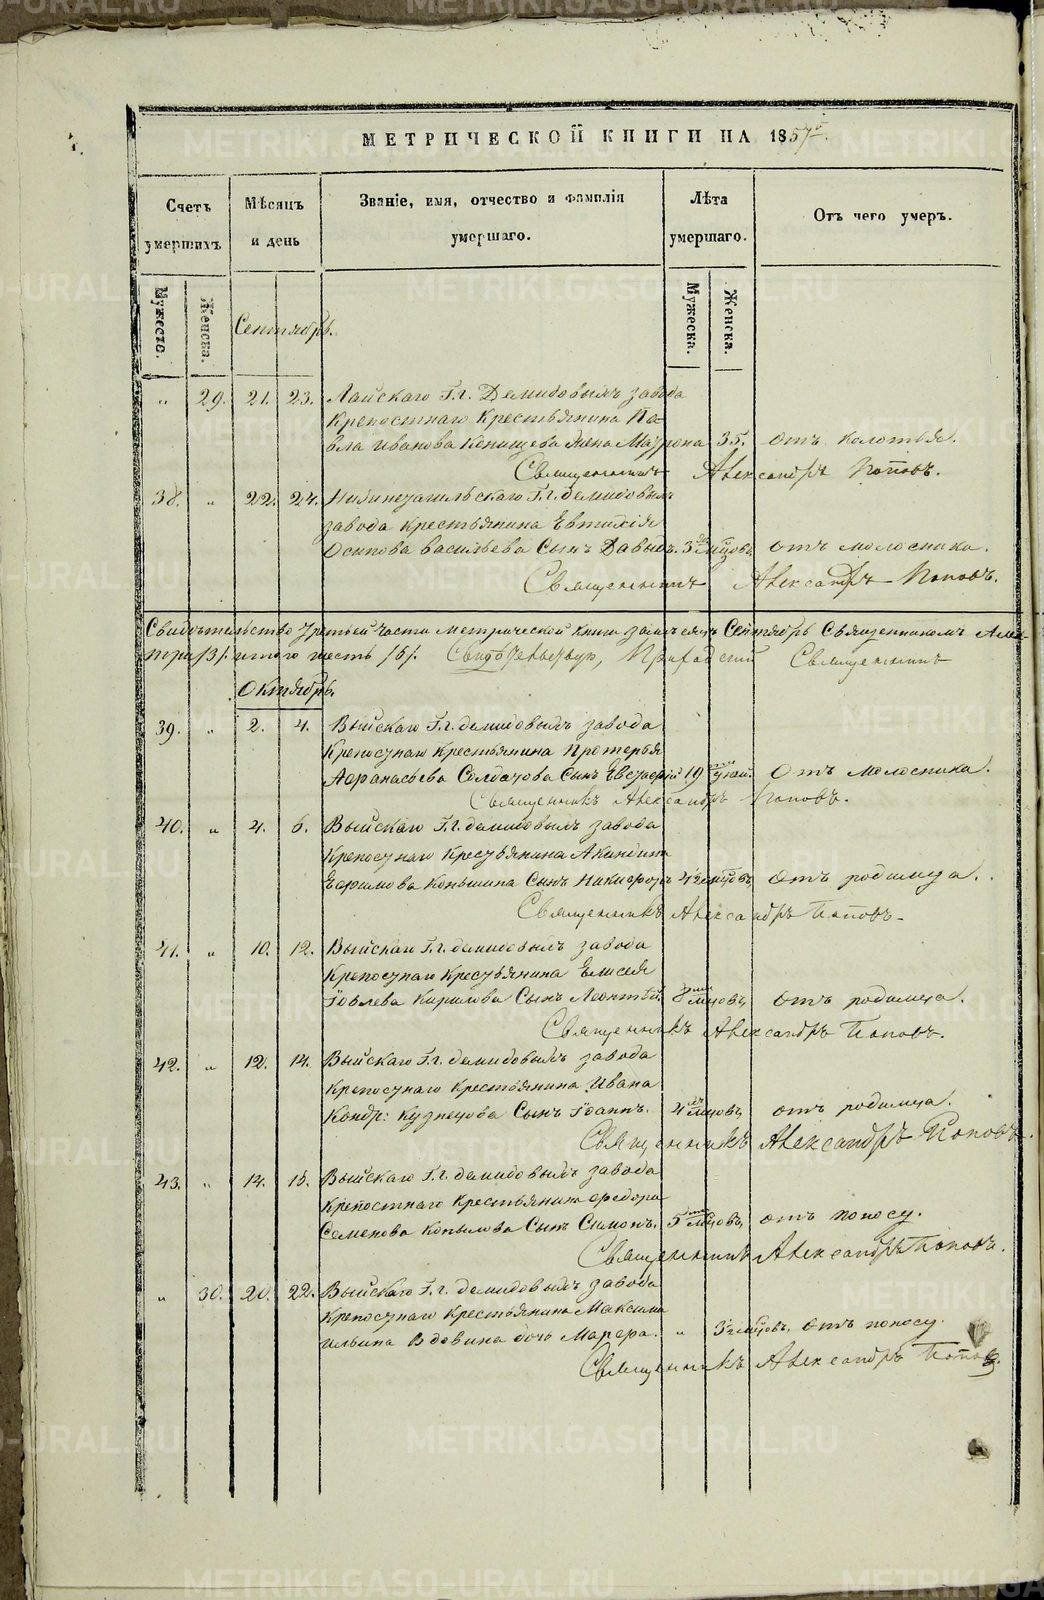 МЕТРИЧЕСКОЙ КНИГИ НА 1857
Счетъ умершихъ.
Мѣсяцъ и день
Званіе, имя, отчество и фамилія умершаго.
Лѣта умершаго.
Отъ чего умеръ.
Мужеска.
Женска.
Мужеска.
Женска.
Сентябрь.
" 29. 21. 23. Лайскаго Г.г. Демидовымъ завода
крепостнаго крестьянина Па-
вла Иванова Конищева жена Маурона 35. отъ колотья.
Священникъ Александръ Поповъ.
38. " 22. 24. Нижнетагильскаго Г.г. демидовымъ
завода крестьянина Евтихія
Осипова васильева Сынъ Давыдъ. 3 мцовъ отъ молосника.
Священникъ Александръ Поповъ.
Свидѣтельство третьей части метрической книги за месяцъ Сентябрь Священникомъ
три /3/. итого шесть /6/. Приходскій Священникъ
Октябрь.
39. " 2. 4. Выйскаго Г.г. демидовымъ завода
Крепостнаго крестьянина Протерья
Афанасьева Солдатова Сынъ Евстафій 19 Отъ молосника.
Священникъ Александръ Поповъ.
40. " 4. 6. Выйскаго Г.г. демидовымъ завода
Крепостнаго крестьянина Акиндина
Ефимова Коньшина Сынъ Никифоръ 4 мцовъ отъ родимца.
Священникъ Александръ Поповъ.
41. " 10. 12. Выйскаго Г.г. демидовымъ завода
Крепостнаго крестьянина Елисея
Іовлева Кирилова Сынъ Леонтій. 8 мцовъ, отъ родимца.
Священникъ Александръ Поповъ.
42. " 12. 14. Выйскаго Г.г. демидовымъ завода
Крепостнаго крестьянина Ивана
Кондр: Кузнецова Сынъ Іоаннъ. 4 мцовъ, отъ родимца.
Священникъ Александръ Поповъ.
43. " 14. 15. Выйскаго Г.г. демидовымъ завода
Крепостнаго крестьянина Федора
Семенова Копылова Сынъ Симонъ. 5 мцовъ, отъ поносу.
Священникъ Александръ Поповъ.
" 30. 20. 22. Выйскаго Г.г. демидовымъ завода
Крепостнаго крестьянина Максима
Ильина Вдовина дочь Марфа. " 3 мцовъ. отъ поносу.
Священникъ Александръ Поповъ.
METRIKI.GASO-URAL.RU